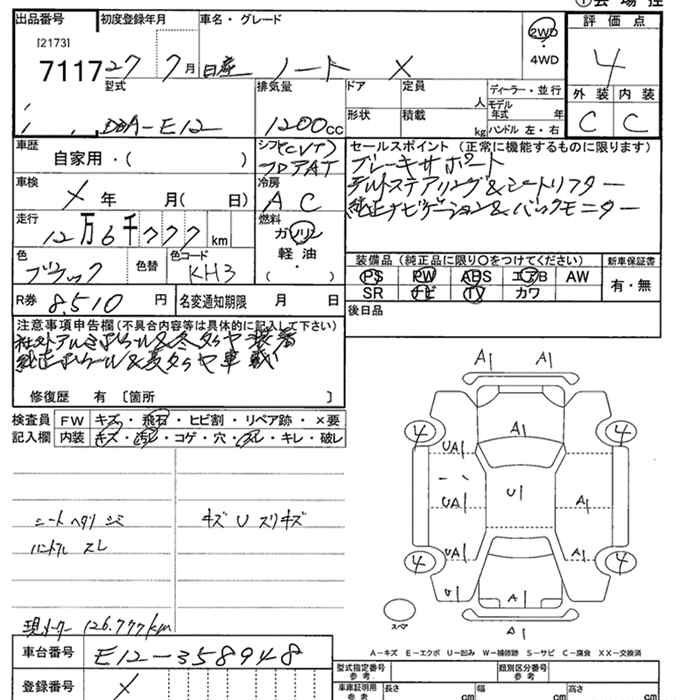 出品番号 初度登録年月 車名・グレード 評価点
[2173]
7117 27 7月 日産 ノート X 2WD ・ 4WD 4
型式 排気量 ドア 定員 人 ディーラー・並行 外装 内装
DBA-E12 1200cc 形状 積載 kg モデル年式 年 ハンドル 左・右 C C
車歴 自家用・( ) シフト(CVT) フロア AT
セールスポイント(正常に機能するものに限ります)
ブレーキサポート
車検 X 年 月( 日) 冷房 AC
チルトステアリング&シートリフター
純正ナビゲーション&バックモニター
走行 12万6千777km 燃料 ガソリン 軽油 ・( )
色 ブラック 色替 色コード KH3
装備品(純正品に限り○をつけてください) 新車保証書
PS PW ABS エアB AW 有・無
SR ナビ TV カワ
R券 8,510円 名変通知期限 月 日
後日品
注意事項申告欄(不具合内容等は具体的に記入して下さい)
社外アルミホイール&冬タイヤ装着
純正ホイール&夏タイヤ車載
修復歴 有 [箇所 ]
検査員 FW キズ・飛石・ヒビ割・リペア跡・×要
記入欄 内装 キズ・汚レ・コゲ・穴・スレ・キレ・破レ
A1 A1
A1
4 4
UA1
UA1 U1 A1
UA1 A1
4 4
U1 A1
A1
スペア
シートヘタリ シミ キズ U スリキズ
ハンドル スレ
現メーター 126,777km
A-キズ E-エクボ U-凹み W-補修跡 S-サビ C-腐食 XX-交換済
車台番号 E12-358948
型式指定番号 参考 類別区分番号 参考
登録番号 X
車庫証明用 参考 長さ cm 幅 cm 高さ cm